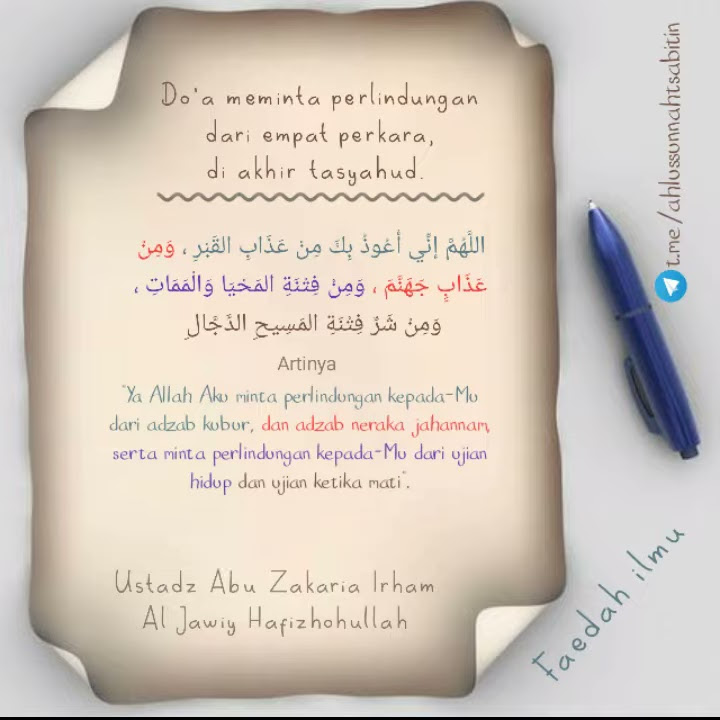 Do'a meminta perlindungan
dari empat perkara,
di akhir tasyahud.
اللَّهُمَّ إِنِّي أَعُوذُ بِكَ مِنْ عَذَابِ القَبْرِ ، وَمِنْ
عَذَابِ جَهَنَّمَ ، وَمِنْ فِتْنَةِ المَحْيَا وَالْمَمَاتِ ،
وَمِنْ شَرِّ فِتْنَةِ المَسِيحِ الدَّجَّالِ
Artinya
"Ya Allah Aku minta perlindungan kepada-Mu
dari adzab kubur, dan adzab neraka jahannam,
serta minta perlindungan kepada-Mu dari ujian
hidup dan ujian ketika mati".
Ustadz Abu Zakaria Irham
Al Jawiy Hafizhohullah
t.me/ahlussunnahtsabitin
Faedah ilmu